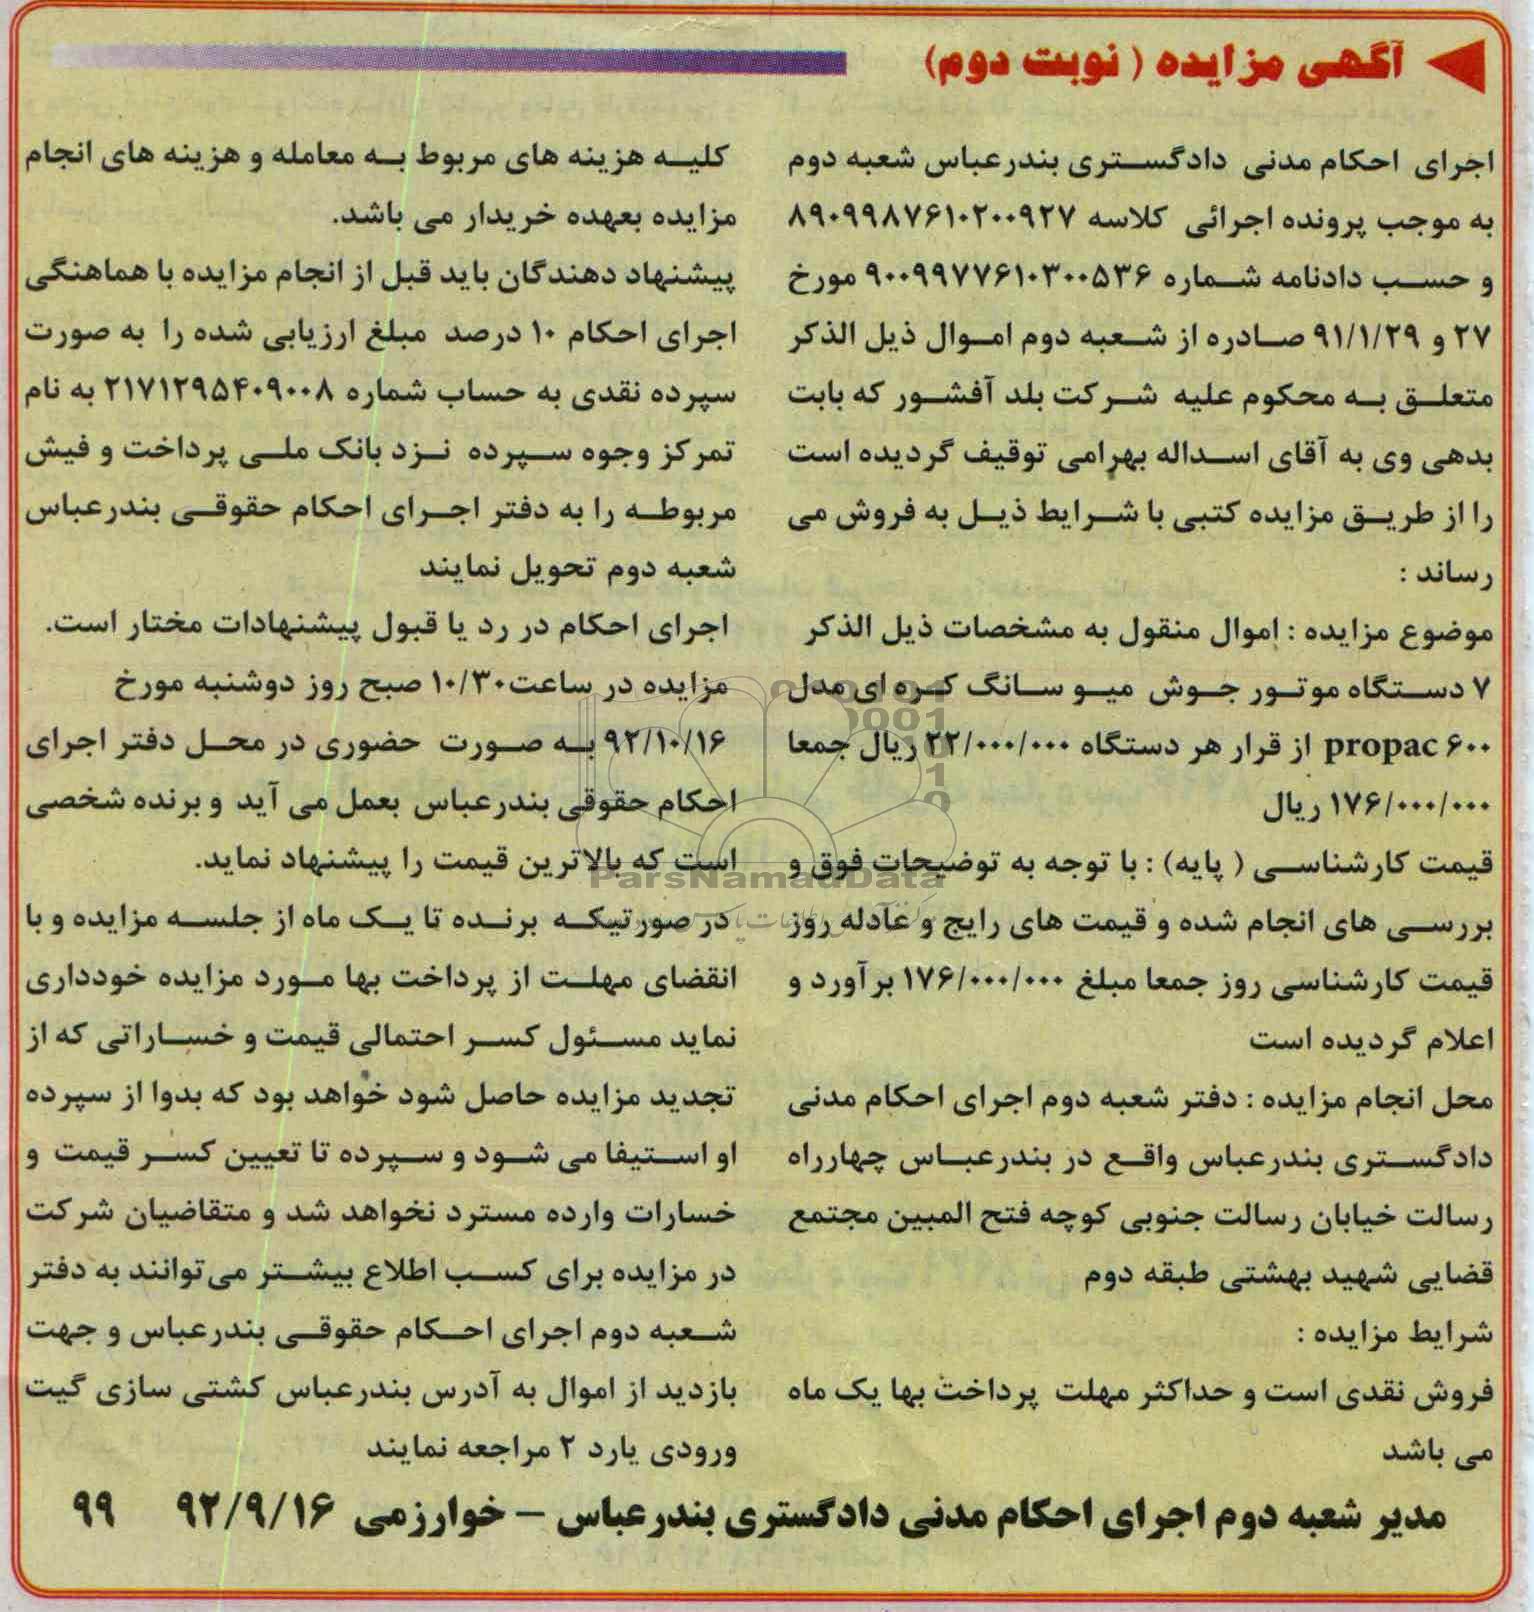 آگهی مزایده ( نوبت دوم)
اجرای احکام مدنی دادگستری بندرعباس شعبه دوم
به موجب پرونده اجرائی کلاسه ۸۹۰۹۹۸۷۶۱۰۲۰۰۹۲۷
و حسب دادنامه شماره ۹۰۰۹۹۷۷۶۱۰۳۰۰۵۳۶ مورخ
۲۷ و ۹۱/۱/۲۹ صادره از شعبه دوم اموال ذیل الذکر
متعلق به محکوم علیه شرکت بلد آفشور که بابت
بدهی وی به آقای اسداله بهرامی توقیف گردیده است
را از طریق مزایده کتبی با شرایط ذیل به فروش می
رساند :
موضوع مزایده : اموال منقول به مشخصات ذیل الذکر
۷ دستگاه موتور جوش میو سانگ کره ای مدل
propac ۶۰۰ از قرار هر دستگاه ۲۲/۰۰۰/۰۰۰ ریال جمعا
۱۷۶/۰۰۰/۰۰۰ ریال
قیمت کارشناسی ( پایه) : با توجه به توضیحات فوق و
بررسی های انجام شده و قیمت های رایج و عادله روز
قیمت کارشناسی روز جمعا مبلغ ۱۷۶/۰۰۰/۰۰۰ برآورد و
اعلام گردیده است
محل انجام مزایده : دفتر شعبه دوم اجرای احکام مدنی
دادگستری بندرعباس واقع در بندرعباس چهارراه
رسالت خیابان رسالت جنوبی کوچه فتح المبین مجتمع
قضایی شهید بهشتی طبقه دوم
شرایط مزایده :
فروش نقدی است و حداکثر مهلت پرداخت بها یک ماه
می باشد
کلیه هزینه های مربوط به معامله و هزینه های انجام
مزایده بعهده خریدار می باشد.
پیشنهاد دهندگان باید قبل از انجام مزایده با هماهنگی
اجرای احکام ۱۰ درصد مبلغ ارزیابی شده را به صورت
سپرده نقدی به حساب شماره ۲۱۷۱۲۹۵۴۰۹۰۰۸ به نام
تمرکز وجوه سپرده نزد بانک ملی پرداخت و فیش
مربوطه را به دفتر اجرای احکام حقوقی بندرعباس
شعبه دوم تحویل نمایند
اجرای احکام در رد یا قبول پیشنهادات مختار است.
مزایده در ساعت۱۰/۳۰ صبح روز دوشنبه مورخ
۹۲/۱۰/۱۶ به صورت حضوری در محل دفتر اجرای
احکام حقوقی بندرعباس بعمل می آید و برنده شخصی
است که بالاترین قیمت را پیشنهاد نماید.
در صورتیکه برنده تا یک ماه از جلسه مزایده و با
انقضای مهلت از پرداخت بها مورد مزایده خودداری
نماید مسئول کسر احتمالی قیمت و خساراتی که از
تجدید مزایده حاصل شود خواهد بود که بدوا از سپرده
او استیفا می شود و سپرده تا تعیین کسر قیمت و
خسارات وارده مسترد نخواهد شد و متقاضیان شرکت
در مزایده برای کسب اطلاع بیشتر می‌توانند به دفتر
شعبه دوم اجرای احکام حقوقی بندرعباس و جهت
بازدید از اموال به آدرس بندرعباس کشتی سازی گیت
ورودی یارد ۲ مراجعه نمایند
مدیر شعبه دوم اجرای احکام مدنی دادگستری بندرعباس – خوارزمی ۹۲/۹/۱۶ ۹۹
ParsNamadData